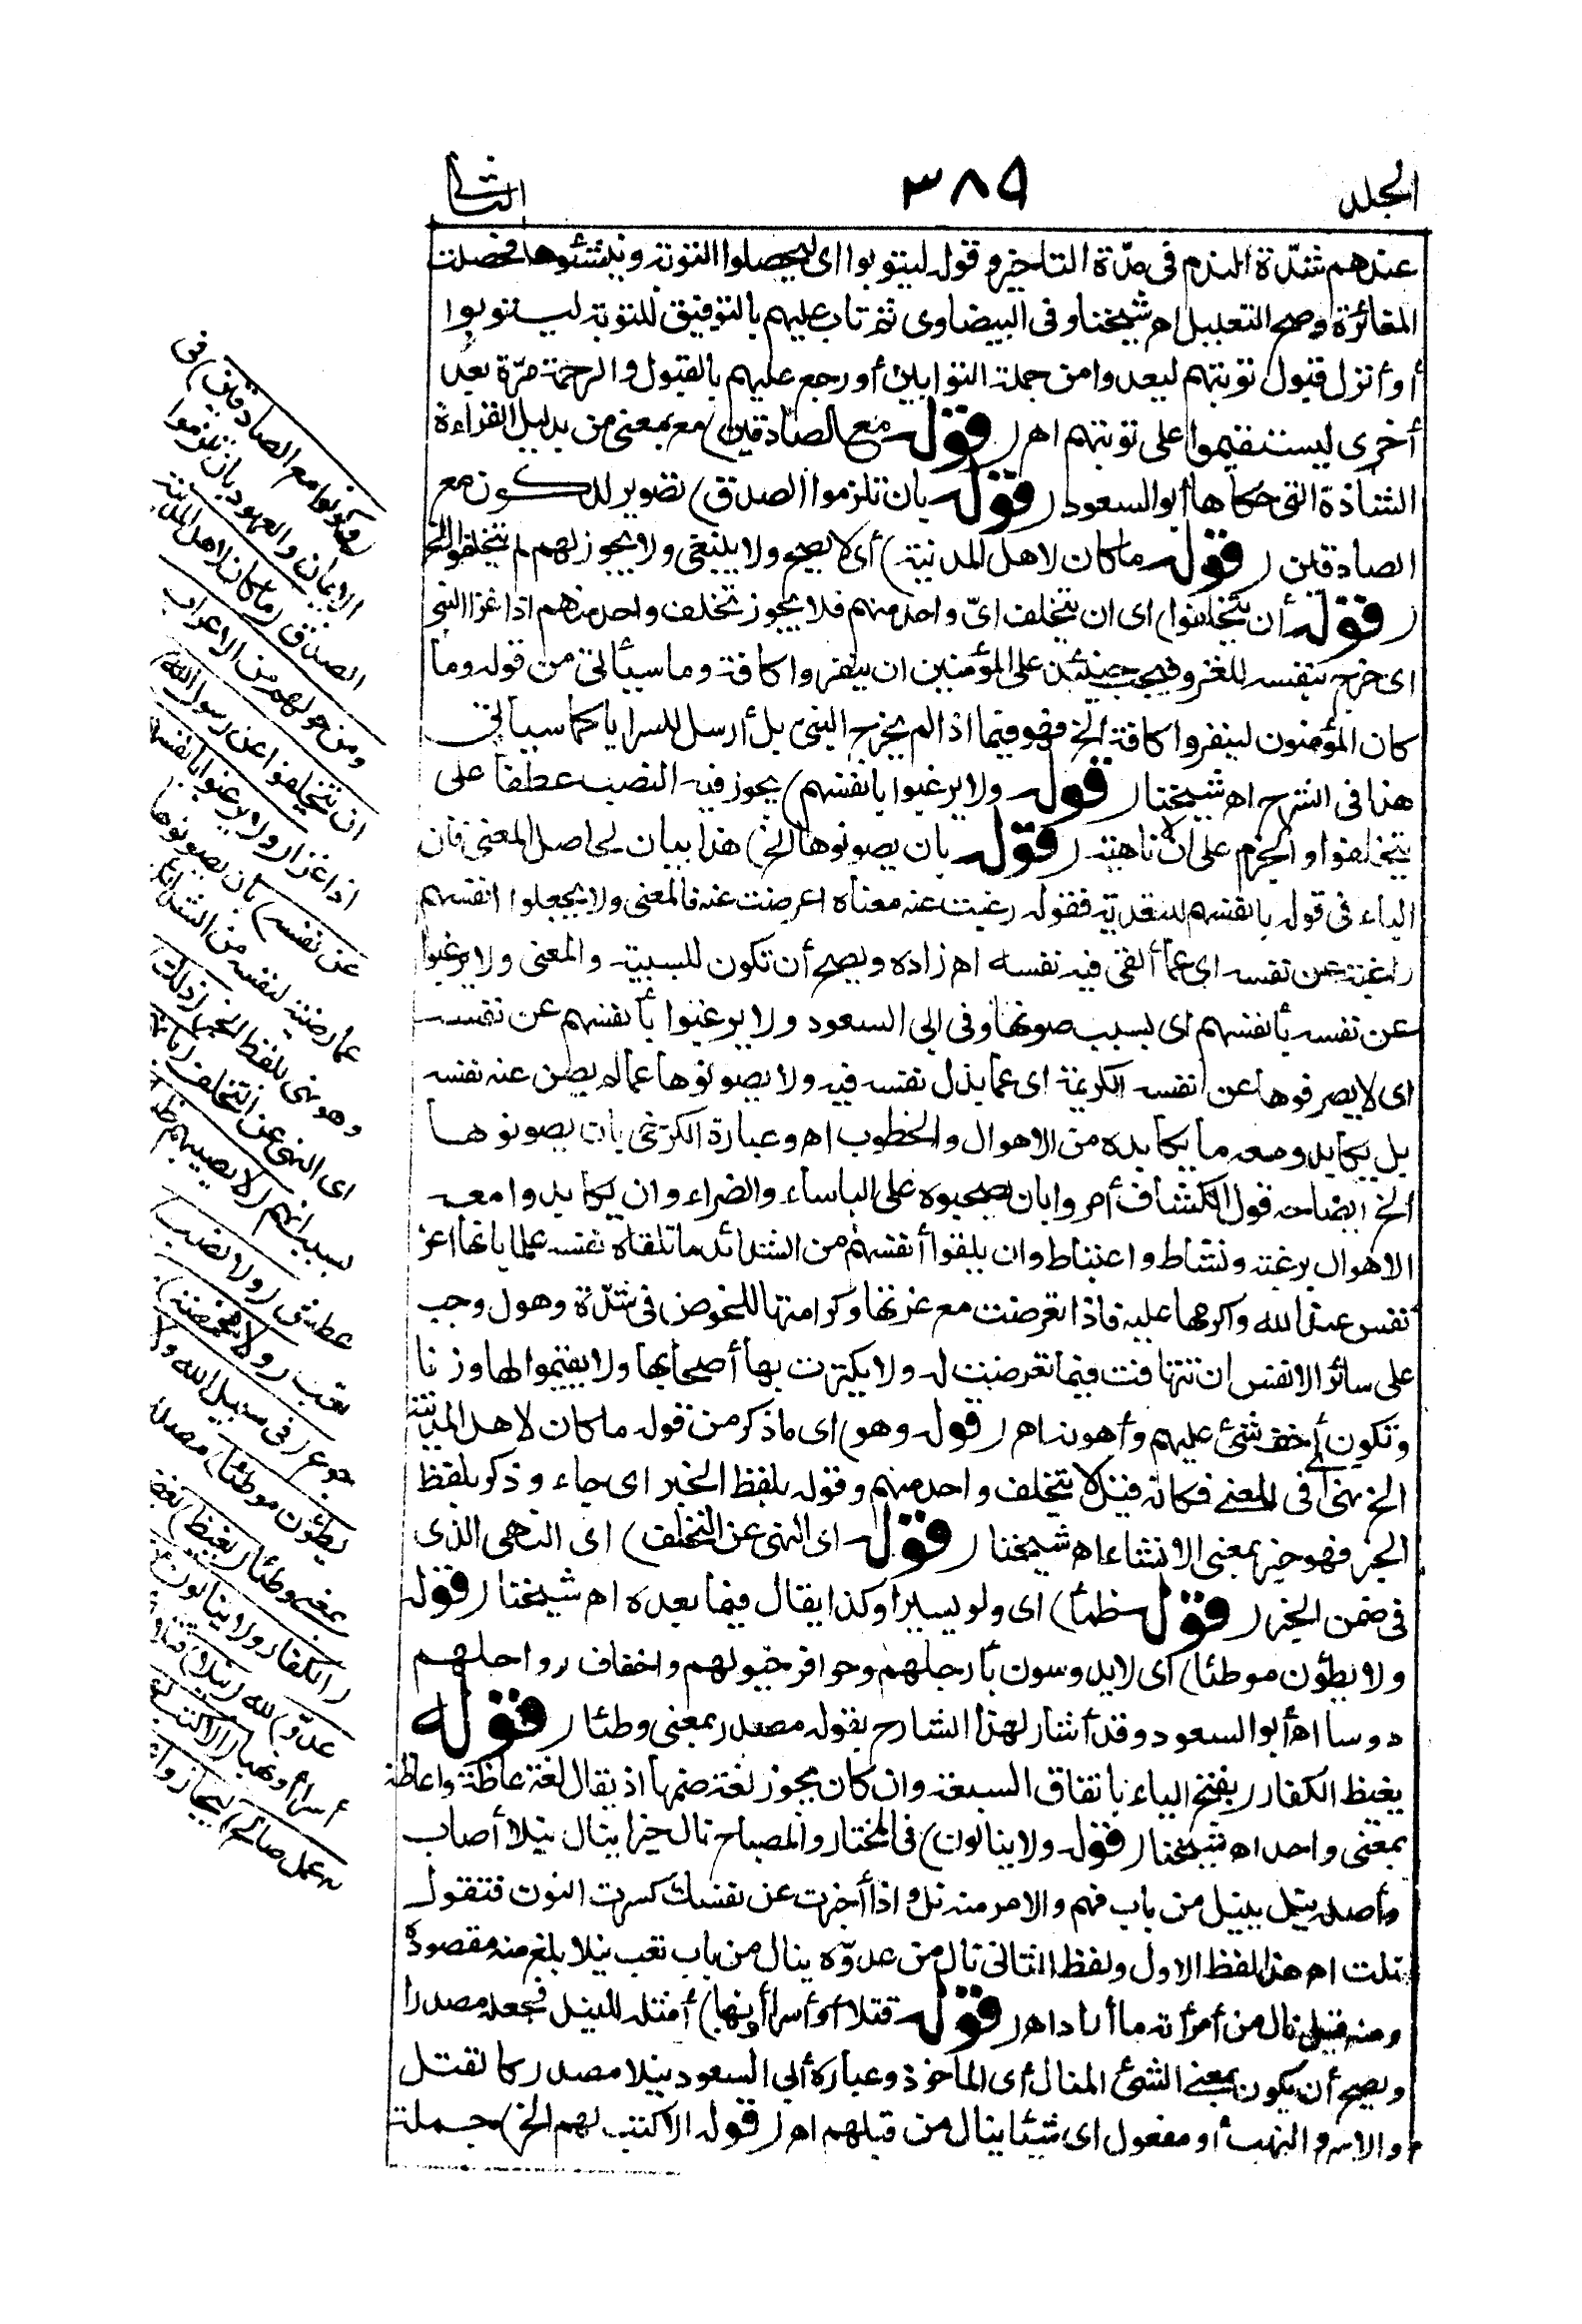 الجلد
٣٨٩
الثانى
عندهم شدّة الندم فى مدّة التاخير وقوله ليتوبوا اى ليحصلوا التوبة وينشئوها فحصلت
المغائرة وصح التعليل اهـ شيخنا وفى البيضاوى ثم تاب عليهم بالتوفيق للتوبة ليتوبوا
أو أنزل قبول توبتهم ليعدوا من جملة التوابين أو رجع عليهم بالقبول والرحمة مرّة بعد
أخرى ليستقيموا على توبتهم اهـ (قوله مع الصادقين) مع بمعنى من بدليل القراءة
الشاذة التى حكاها أبو السعود (قوله بان تلزموا الصدق) تصوير للكون مع
الصادقين (قوله ما كان لاهل المدينة) أى لا يصح ولا ينبغى ولا يجوز لهم ان يتخلفوا الخ
(قوله أن يتخلفوا) اى ان يتخلف اىّ واحد منهم فلا يجوز تخلف واحد منهم اذا غزا النبى
اى خرج بنفسه للغزو فيجب حينئذ على المؤمنين ان ينفروا كافة وما سيأتى من قوله وما
كان المؤمنون لينفروا كافة الخ فهو فيما اذا لم يخرج النبى بل أرسل للسرايا كما سيأتى
هذا فى الشرح اهـ شيخنا (قوله ولا يرغبوا بانفسهم) يجوز فيه النصب عطفا على
يتخلفوا والجزم على ان لا ناهية (قوله بان يصونوها الخ) هذا بيان لحاصل المعنى فان
الباء فى قوله بانفسهم للتعدية فقوله رغبت عنه معناه اعرضت عنه فالمعنى ولا يجعلوا انفسهم
راغبة عن نفسه اى عما ألقى فيه نفسه اهـ زاده ويصح أن تكون للسببية والمعنى ولا يرغبوا
عن نفسه بأنفسهم اى بسبب صونها وفى ابى السعود ولا يرغبوا بأنفسهم عن نفسه
اى لا يصرفوها عن نفسه الكريمة اى عما يذل نفسه فيه ولا يصونوها عما لم يصن عنه نفسه
بل يكابدوا معه ما يكابده من الاهوال والخطوب اهـ وعبارة الكرخى بان يصونوها
الخ ايضاحه قول الكشاف أمروا بان يصحبوه على الباساء والضراء وان يكابدوا معه
الاهوال برغبة ونشاط واغتباط وان يلقوا أنفسهم من الشدائد ما تلقاه نفسه علما بانها اعز
نفس عند الله واكرمها عليه فاذا تعرضت مع عزتها وكرامتها للخوض فى شدّة وهول وجب
على سائر الانفس ان تتهافت فيما تعرضت له ولا يكترث بها أصحابها ولا يقيموا لها وزنا
وتكون أخف شئ عليهم وأهونه اهـ (قوله وهو) اى ما ذكر من قوله ما كان لاهل المدينة
الخ نهى أى فى المعنى فكانه قيل لا يتخلف واحد منهم وقوله بلفظ الخبر اى جاء وذكر بلفظ
الخبر فهو خبر بمعنى الانشاء اهـ شيخنا (قوله اى النهى عن التخلف) اى النهى الذى
فى ضمن الخبر (قوله ظمأ) اى ولو يسيرا وكذا يقال فيما بعده اهـ شيخنا (قوله
ولا يطؤن موطئا) اى لا يدوسون بأرجلهم وحوافر خيولهم واخفاف رواحلهم
دوسا اهـ أبو السعود وقد أشار لهذا الشارح بقوله مصدر بمعنى وطئا (قوله
يغيظ الكفار) بفتح الياء باتفاق السبعة وان كان يجوز لغة ضمها اذ يقال لغة غاظه واغاظه
بمعنى واحد اهـ شيخنا (قوله ولا ينالون) فى المختار والمصباح نال خيرا ينال نيلا أصاب
وأصله نيل ينيل من باب فهم والامر منه نل واذا أخبرت عن نفسك كسرت النون فتقول
نلت اهـ هذا لفظ الاول ولفظ الثانى نال من عدوّه ينال من باب تعب نيلا بلغ منه مقصوده
ومنه قيل نال من أمرأته ما أراد اهـ (قوله قتلا أو أسرا أو نهبا) أمثلة للنيل فجعله مصدرا
ويصح أن يكون بمعنى الشئ المنال أى المأخوذ وعبارة أبى السعود نيلا مصدر كالقتل
والاسر والنهب أو مفعول اى شيئا ينال من قبلهم اهـ (قوله الا كتب لهم الخ) جملة
(وكونوا مع الصادقين) فى
الايمان والعهود بان تلزموا
الصدق (ما كان لاهل المدينة
ومن حولهم من الاعراب
ان يتخلفوا عن رسول الله)
اذا غزا (ولا يرغبوا بانفسهم
عن نفسه) بان يصونوها
عما رضيه لنفسه من الشدائد
وهو نهى بلفظ الخبر (ذلك)
اى النهى عن التخلف (بانهم)
بسبب انهم (لا يصيبهم ظمأ)
عطش (ولا نصب)
تعب (ولا مخمصة)
جوع (فى سبيل الله ولا
يطؤن موطئا) مصدر
بمعنى وطئا (يغيظ) يغضب
(الكفار ولا ينالون من
عدوّ) لله (نيلا) قتلا أو
أسرا أو نهبا (الا كتب لهم
به عمل صالح) ليجازوا